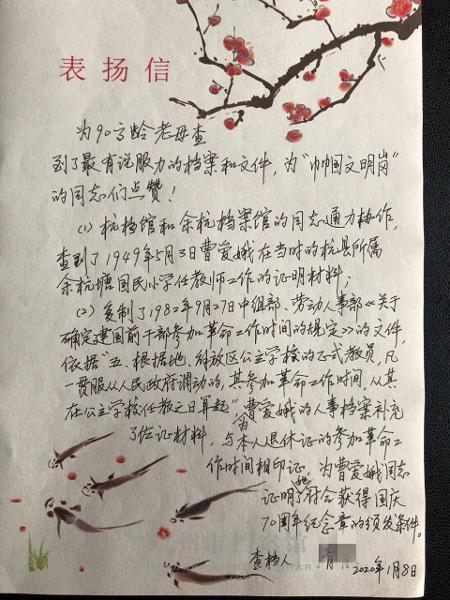 表扬信
为90高龄老母查
到了最有说服力的档案和文件，为“巾帼文明岗”
的同志们点赞！
(1) 杭档馆和余杭档案馆的同志通力协作，
查到了1949年5月3日曹爱娥在当时的杭县所属
余杭塘国民小学任教师工作的证明材料；
(2) 复制了1982年9月27日中组部、劳动人事部《关于
确定建国前干部参加革命工作时间的规定》的文件，
依据“五、根据地、解放区公立学校的正式教员，凡
一贯服从人民政府调动的，其参加革命工作时间，从其
在公立学校任教之日算起”为曹爱娥的人事档案补充
了佐证材料，与本人退休证的参加革命工
作时间相印证，为曹爱娥同志
证明她符合获得国庆
70周年纪念章的颁发条件。
查档人 育
2020年1月8日